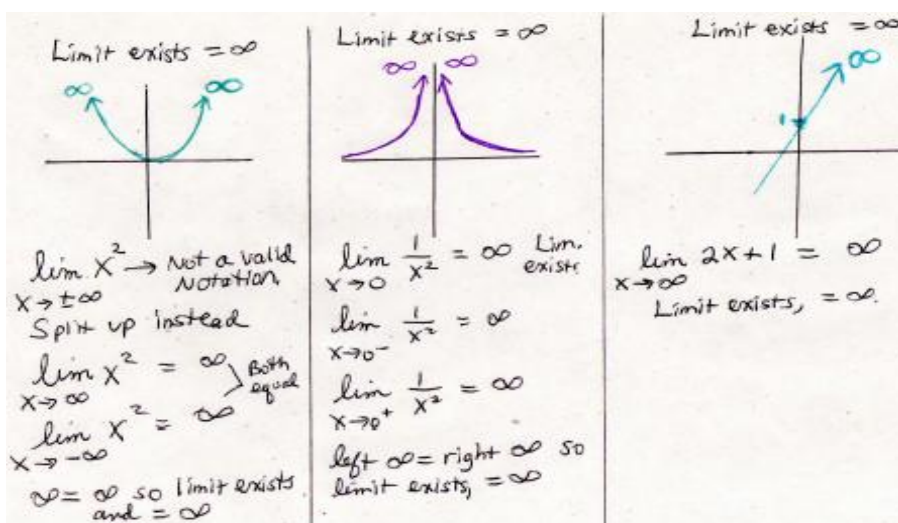 Limit exists = ∞
∞ ∞
lim x² → Not a valid
x→±∞ Notation.
Split up instead
lim x² = ∞
x→∞
Both
equal
lim x² = ∞
x→-∞
∞ = ∞ so limit exists
and = ∞
Limit exists = ∞
∞ ∞
lim 1/x² = ∞ Lim.
x→0 exists
lim 1/x² = ∞
x→0⁻
lim 1/x² = ∞
x→0⁺
left ∞ = right ∞ so
limit exists, = ∞
Limit exists = ∞
∞
1
lim 2x+1 = ∞
x→∞
Limit exists, = ∞.